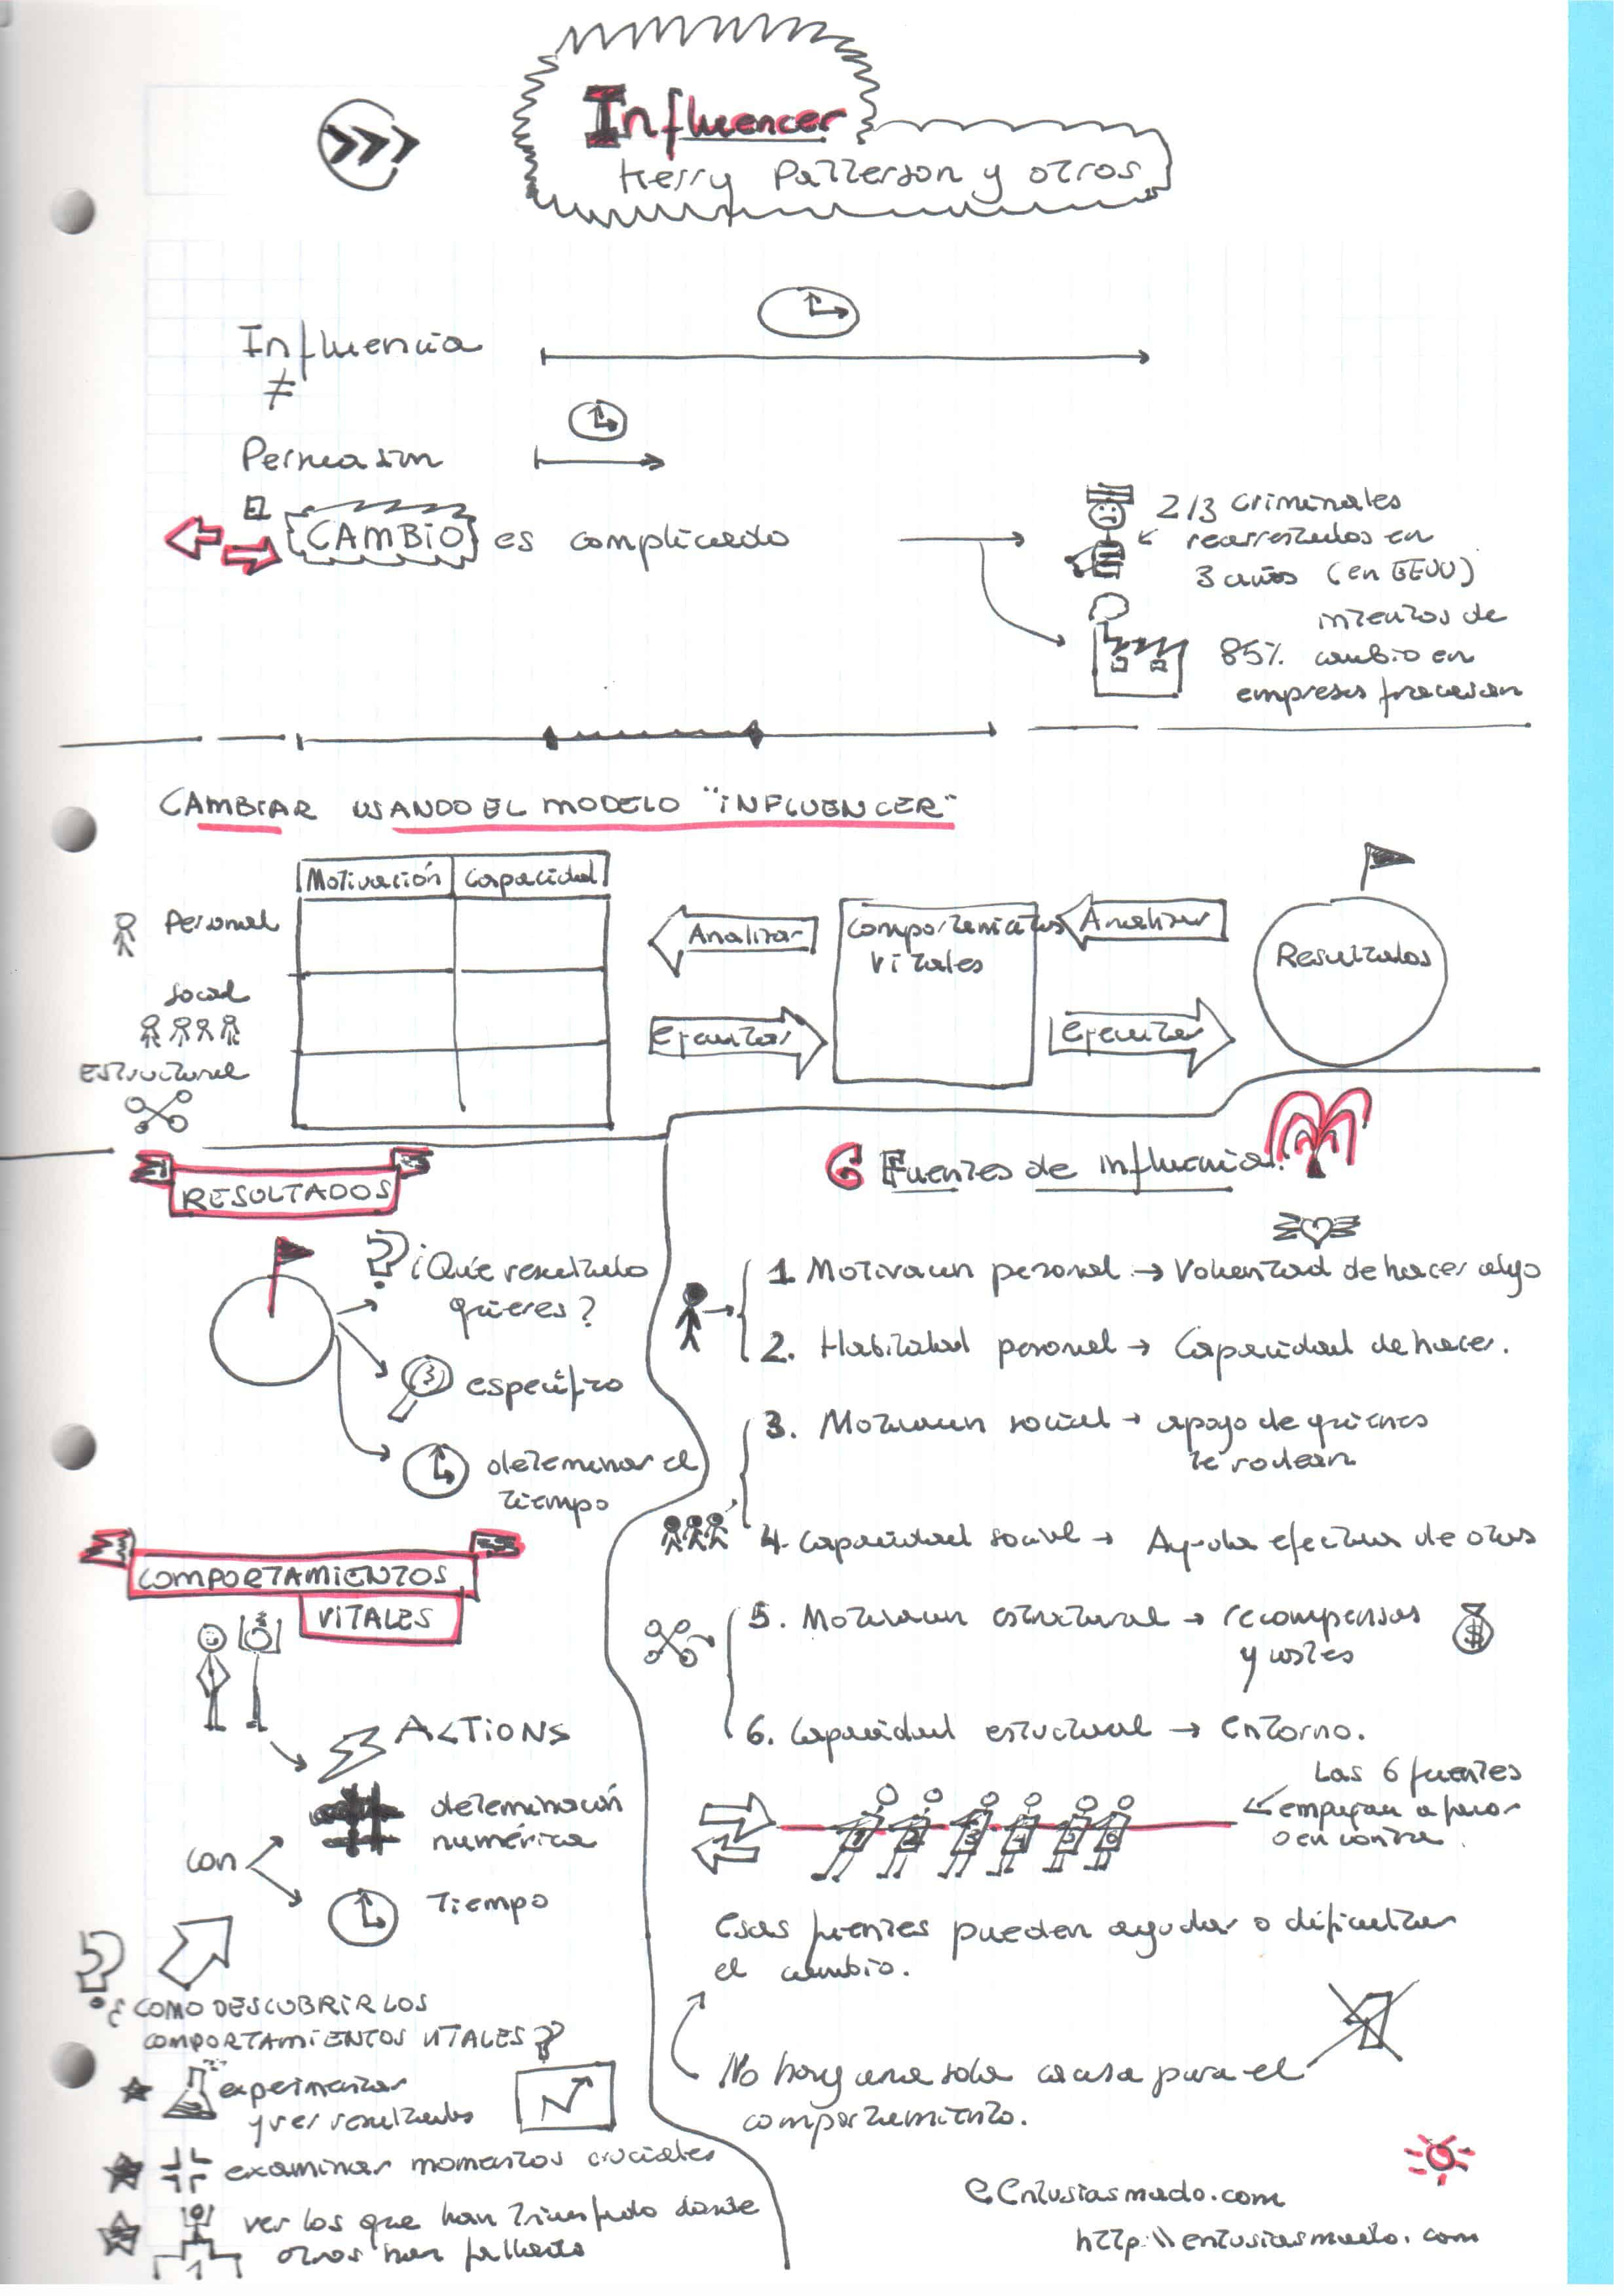 Influencer
Kerry Patterson y otros
Influencia
≠
Persuasion
El
CAMBIO es complicado
2/3 criminales
rearrestados en
3 años (en EEUU)
intentos de
85% cambio en
empresas fracasan
CAMBIAR USANDO EL MODELO "INFLUENCER"
Motivación Capacidad
Personal
Social
Estructural
Analizar
Ejecutar
Comportamientos
Vitales
Analizar
Ejecutar
Resultados
RESULTADOS
? ¿Qué resultado
quieres?
específico
determinar el
tiempo
COMPORTAMIENTOS
VITALES
ACTIONS
determinación
numérica
con
Tiempo
?
¿COMO DESCUBRIR LOS
COMPORTAMIENTOS VITALES?
experimentar
y ver resultados
examinar momentos cruciales
ver los que han triunfado donde
otros han fallado
1
6 Fuentes de influencia.
1. Motivacion personal → Voluntad de hacer algo
2. Habilidad personal → Capacidad de hacer.
3. Motivacion social → apoyo de quienes
te rodean
4. Capacidad social → Ayuda efectiva de otros
5. Motivacion estructural → recompensas
y costes
$
6. Capacidad estructural → Entorno.
Las 6 fuentes
empujan a favor
o en contra.
1 2 3 4 5 6
Esas fuentes pueden ayudar o dificultar
el cambio.
1
No hay una sola causa para el
comportamiento.
@Entusiasmado.com
http://entusiasmado.com